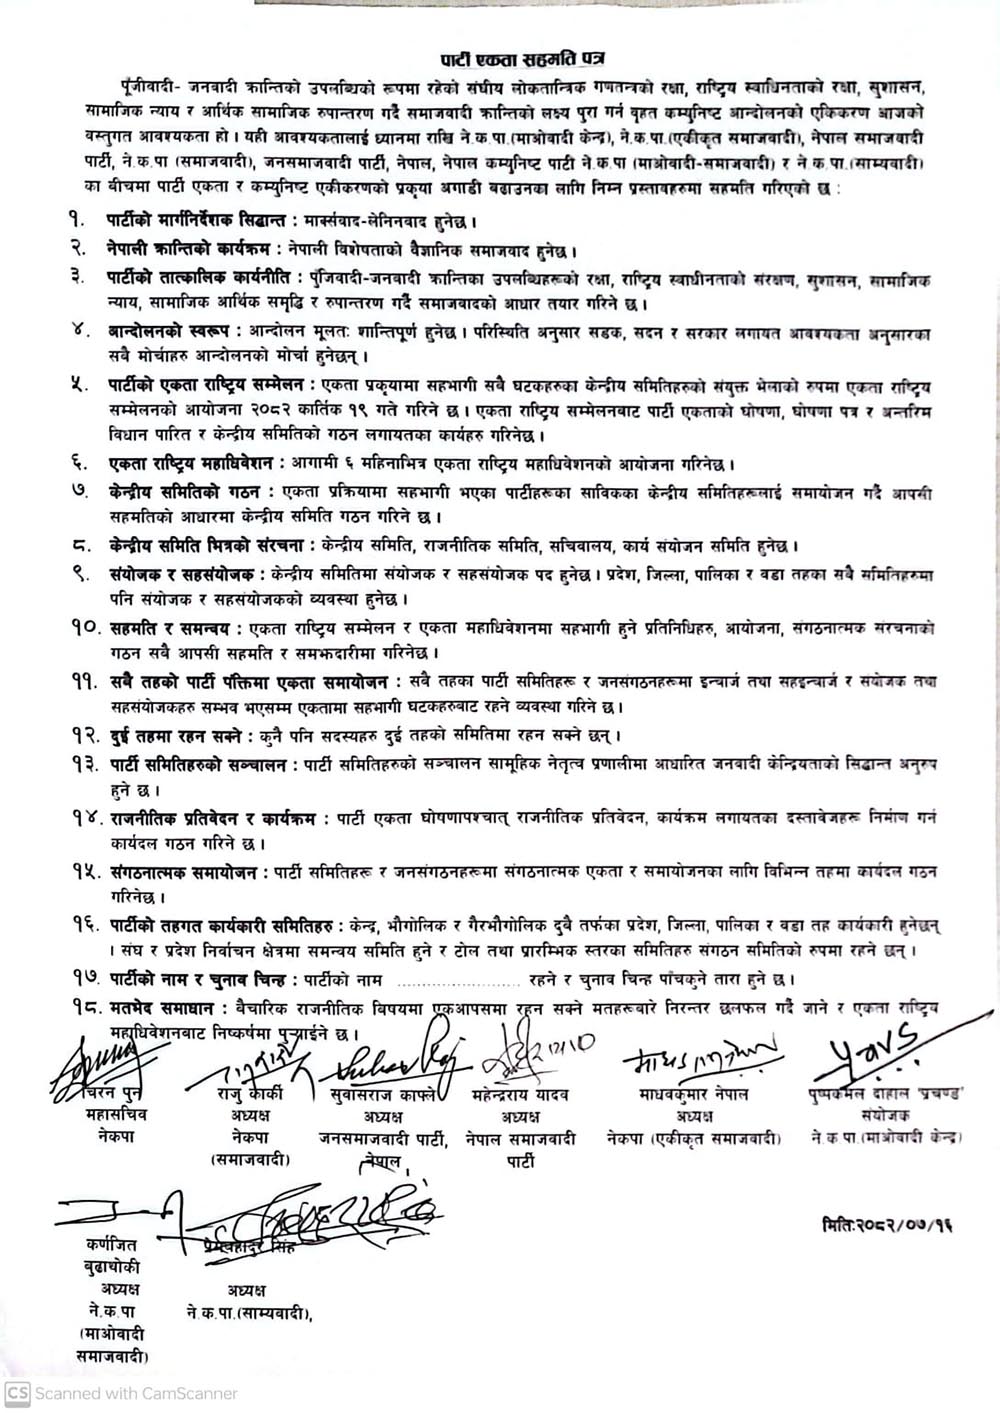 पार्टी एकता सहमति पत्र
पूँजीवादी- जनवादी क्रान्तिको उपलब्धिको रूपमा रहेको संघीय लोकतान्त्रिक गणतन्त्रको रक्षा, राष्ट्रिय स्वाधिनताको रक्षा, सुशासन,
सामाजिक न्याय र आर्थिक सामाजिक रुपान्तरण गर्दै समाजवादी क्रान्तिको लक्ष्य पुरा गर्न वृहत कम्युनिष्ट आन्दोलनको एकिकरण आजको
वस्तुगत आवश्यकता हो । यही आवश्यकतालाई ध्यानमा राखि ने.क.पा.(माओवादी केन्द्र), ने.क.पा.(एकीकृत समाजवादी), नेपाल समाजवादी
पार्टी, ने.क.पा (समाजवादी), जनसमाजवादी पार्टी, नेपाल, नेपाल कम्युनिष्ट पाटी ने.क.पा (माओवादी-समाजवादी) र ने.क.पा.(साम्यवादी)
का बीचमा पार्टी एकता र कम्युनिष्ट एकीकरणको प्रकृया अगाडी बढाउनका लागि निम्न प्रस्तावहरुमा सहमति गरिएको छ :
१. पार्टीको मार्गनिर्देशक सिद्धान्त : मार्क्सवाद-लेनिनवाद हुनेछ ।
२. नेपाली क्रान्तिको कार्यक्रम : नेपाली विशेषताको वैज्ञानिक समाजवाद हुनेछ ।
३. पार्टीको तात्कालिक कार्यनीति : पुँजिवादी-जनवादी क्रान्तिका उपलब्धिहरूको रक्षा, राष्ट्रिय स्वाधीनताको संरक्षण, सुशासन, सामाजिक
न्याय, सामाजिक आर्थिक समृद्धि र रुपान्तरण गर्दै समाजवादको आधार तयार गरिने छ ।
४. आन्दोलनको स्वरूप : आन्दोलन मूलतः शान्तिपूर्ण हुनेछ । परिस्थिति अनुसार सडक, सदन र सरकार लगायत आवश्यकता अनुसारका
सबै मोर्चाहरु आन्दोलनको मोर्चा हुनेछन् ।
५. पार्टीको एकता राष्ट्रिय सम्मेलन : एकता प्रकृयामा सहभागी सबै घटकहरुका केन्द्रीय समितिहरुको संयुक्त भेलाको रुपमा एकता राष्ट्रिय
सम्मेलनको आयोजना २०८२ कार्तिक १९ गते गरिने छ । एकता राष्ट्रिय सम्मेलनबाट पार्टी एकताको घोषणा, घोषणा पत्र र अन्तरिम
विधान पारित र केन्द्रीय समितिको गठन लगायतका कार्यहरु गरिनेछ ।
६. एकता राष्ट्रिय महाधिवेशन : आगामी ६ महिनाभित्र एकता राष्ट्रिय महाधिवेशनको आयोजना गरिनेछ ।
७. केन्द्रीय समितिको गठन : एकता प्रक्रियामा सहभागी भएका पार्टीहरूका साविकका केन्द्रीय समितिहरूलाई समायोजन गर्दै आपसी
सहमतिको आधारमा केन्द्रीय समिति गठन गरिने छ ।
८. केन्द्रीय समिति भित्रको संरचना : केन्द्रीय समिति, राजनीतिक समिति, सचिवालय, कार्य संयोजन समिति हुनेछ ।
९. संयोजक र सहसंयोजक : केन्द्रीय समितिमा संयोजक र सहसंयोजक पद हुनेछ । प्रदेश, जिल्ला, पालिका र वडा तहका सबै समितिहरुमा
पनि संयोजक र सहसंयोजकको व्यवस्था हुनेछ ।
१०. सहमति र समन्वय : एकता राष्ट्रिय सम्मेलन र एकता महाधिवेशनमा सहभागी हुने प्रतिनिधिहरु, आयोजना, संगठनात्मक संरचनाको
गठन सबै आपसी सहमति र समझदारीमा गरिनेछ ।
११. सबै तहको पार्टी पंक्तिमा एकता समायोजन : सबै तहका पार्टी समितिहरू र जनसंगठनहरूमा इन्चार्ज तथा सहइन्चार्ज र संयोजक तथा
सहसंयोजकहरु सम्भव भएसम्म एकतामा सहभागी घटकहरुबाट रहने व्यवस्था गरिने छ ।
१२. दुई तहमा रहन सक्ने : कुनै पनि सदस्यहरु दुई तहको समितिमा रहन सक्ने छन् ।
१३. पार्टी समितिहरुको सञ्चालन : पार्टी समितिहरुको सञ्चालन सामूहिक नेतृत्व प्रणालीमा आधारित जनवादी केन्द्रियताको सिद्धान्त अनुरुप
हुने छ ।
१४. राजनीतिक प्रतिवेदन र कार्यक्रम : पार्टी एकता घोषणापश्चात् राजनीतिक प्रतिवेदन, कार्यक्रम लगायतका दस्तावेजहरू निर्माण गर्न
कार्यदल गठन गरिने छ ।
१५. संगठनात्मक समायोजन : पार्टी समितिहरू र जनसंगठनहरूमा संगठनात्मक एकता र समायोजनका लागि विभिन्न तहमा कार्यदल गठन
गरिनेछ ।
१६. पार्टीको तहगत कार्यकारी समितिहरु : केन्द्र, भौगोलिक र गैरभौगोलिक दुबै तर्फका प्रदेश, जिल्ला, पालिका र वडा तह कार्यकारी हुनेछन्
। संघ र प्रदेश निर्वाचन क्षेत्रमा समन्वय समिति हुने र टोल तथा प्रारम्भिक स्तरका समितिहरु संगठन समितिको रुपमा रहने छन् ।
१७. पार्टीको नाम र चुनाव चिन्ह : पार्टीको नाम ........................ रहने र चुनाव चिन्ह पाँचकुने तारा हुने छ ।
१८. मतभेद समाधान : वैचारिक राजनीतिक विषयमा एकआपसमा रहन सक्ने मतहरूबारे निरन्तर छलफल गर्दै जाने र एकता राष्ट्रिय
महाधिवेशनबाट निष्कर्षमा पुऱ्याईने छ ।
चिरन पुन राजु कार्की सुवासराज काफ्ले महेन्द्रराय यादव माधवकुमार नेपाल पुष्पकमल दाहाल 'प्रचण्ड'
महासचिव अध्यक्ष अध्यक्ष अध्यक्ष अध्यक्ष संयोजक
नेकपा नेकपा जनसमाजवादी पार्टी, नेपाल समाजवादी नेकपा (एकीकृत समाजवादी) ने.क.पा.(माओवादी केन्द्र)
(समाजवादी) नेपाल, पार्टी
मितिः२०८२/०७/१६
कर्णजित प्रेमबहादुर सिंह
बुढाथोकी
अध्यक्ष अध्यक्ष
ने.क.पा ने.क.पा.(साम्यवादी),
(माओवादी
समाजवादी)
CS Scanned with CamScanner